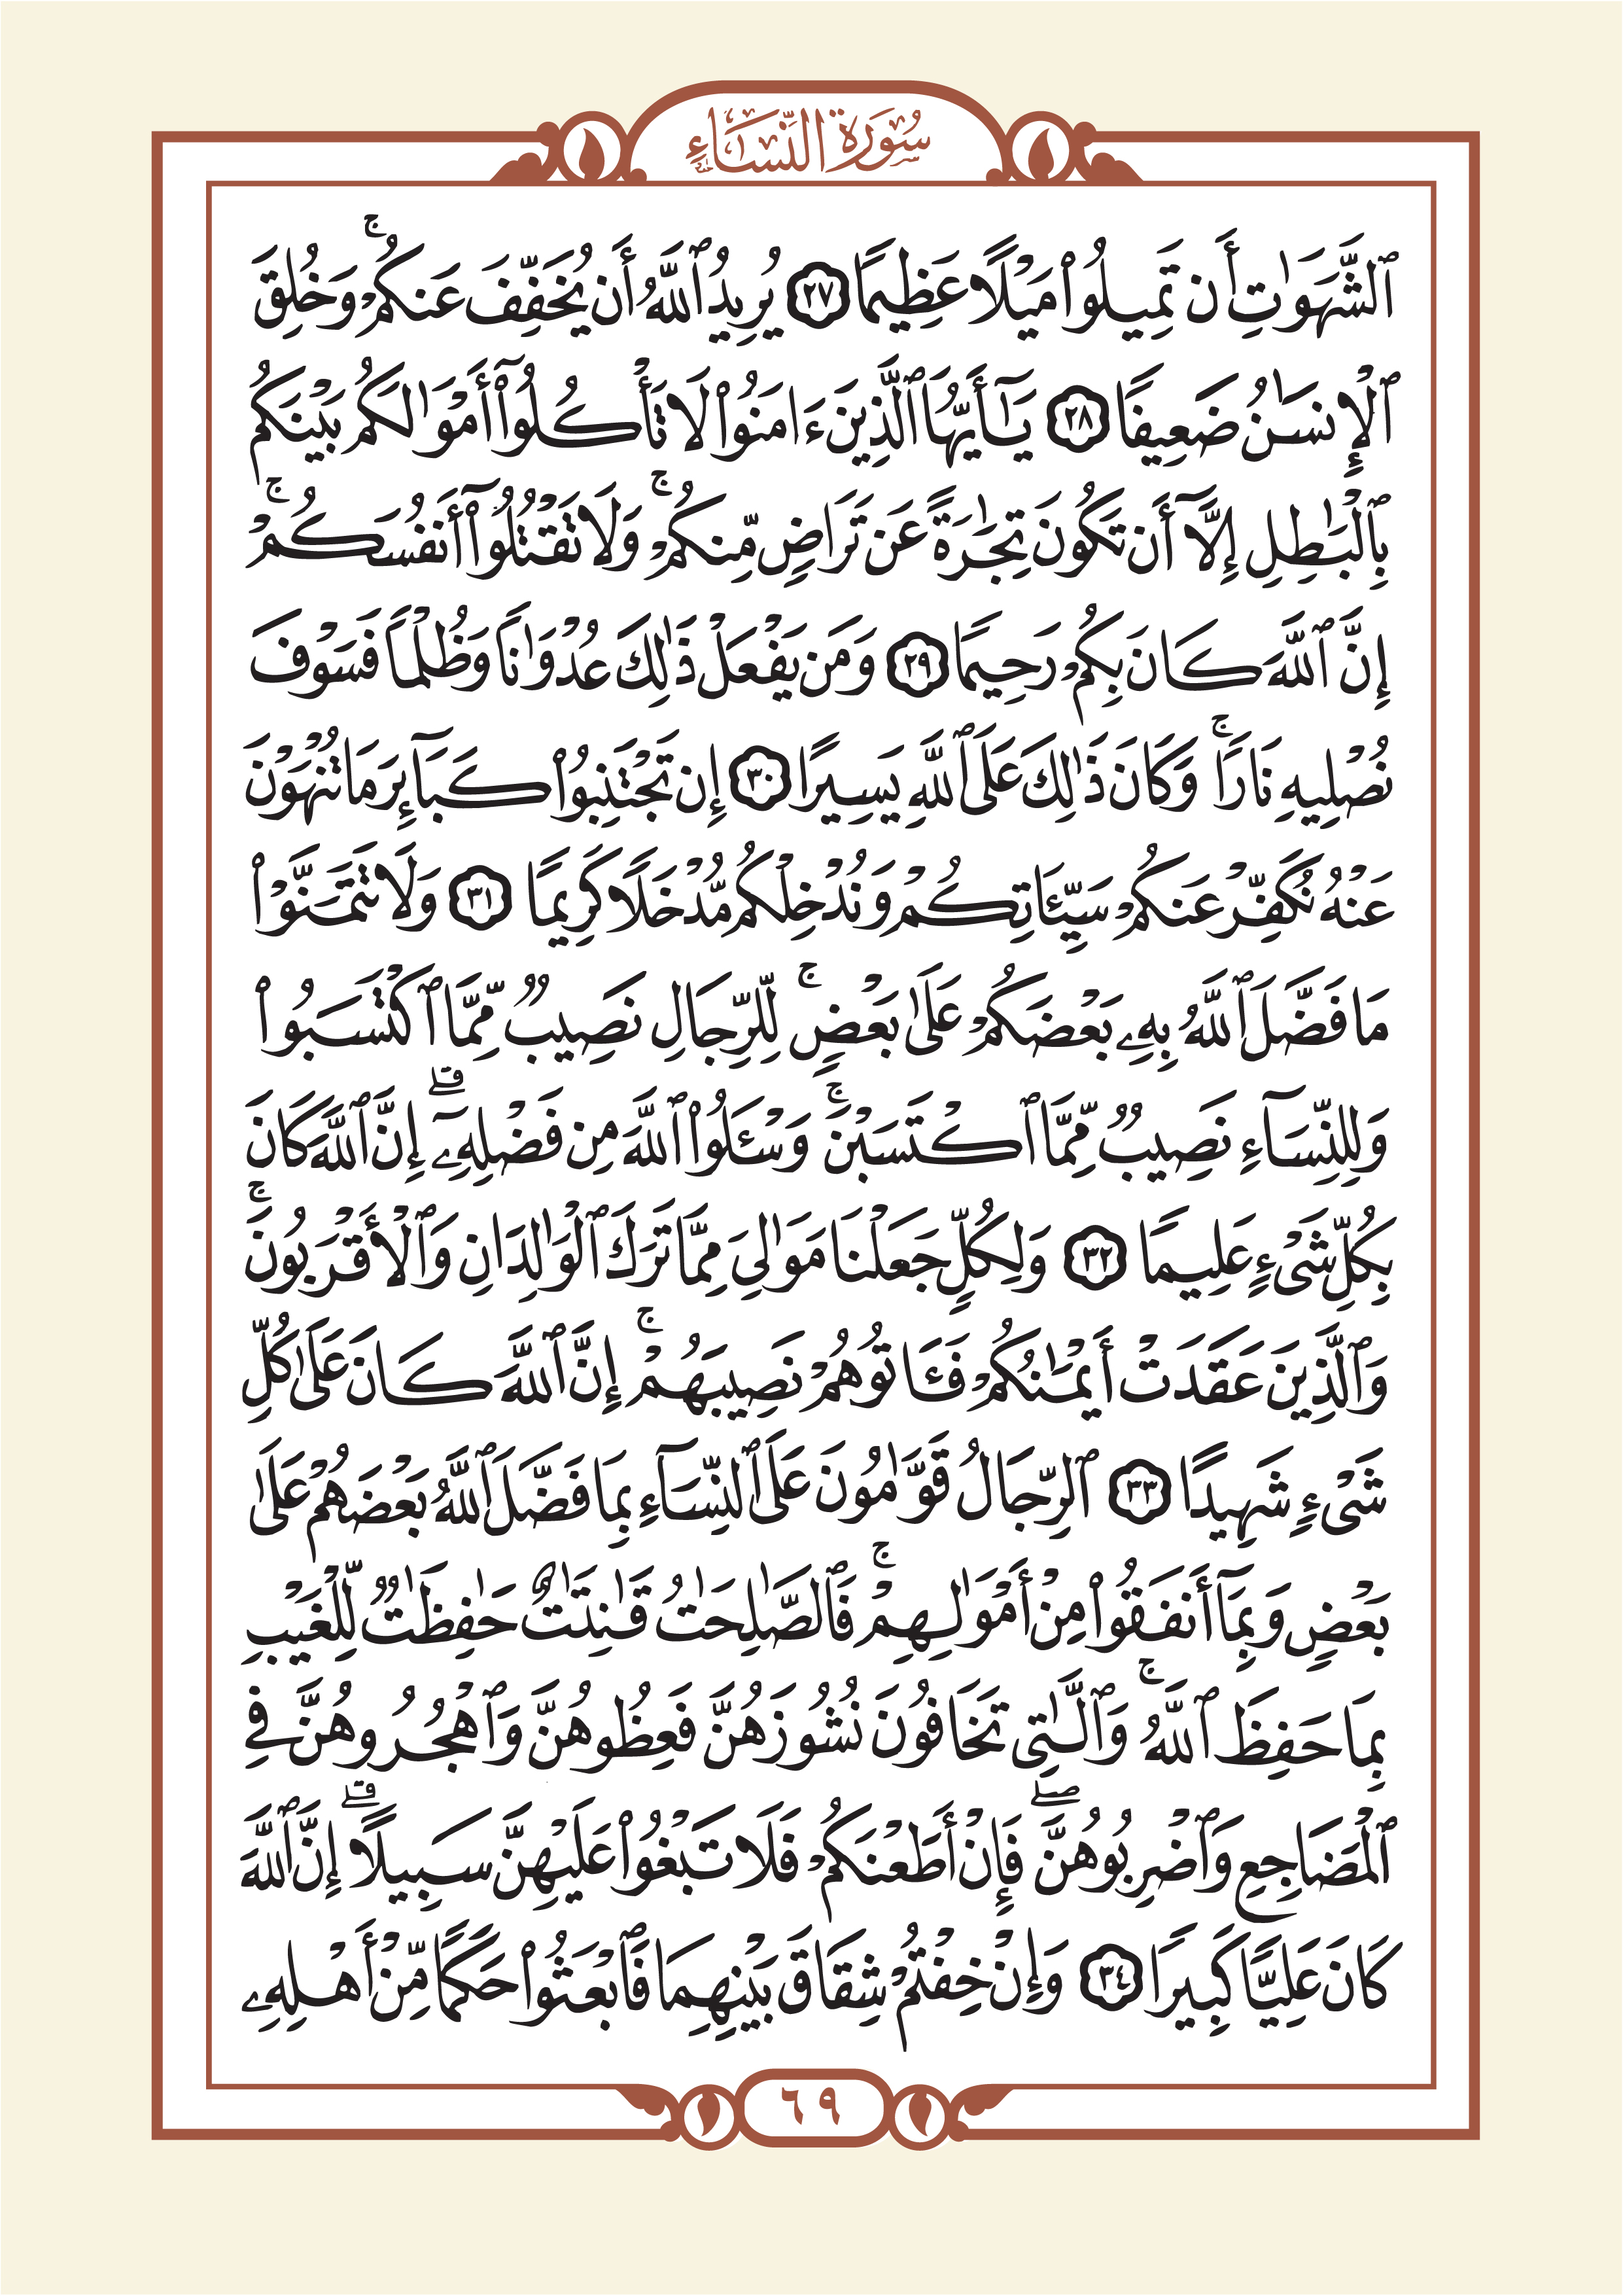 سُورَةُ النِّسَاءِ
ٱلشَّهَوَٰتِ أَن تَمِيلُوا۟ مَيْلًا عَظِيمًا ٢٧ يُرِيدُ ٱللَّهُ أَن يُخَفِّفَ عَنكُمْ ۚ وَخُلِقَ
ٱلْإِنسَـٰنُ ضَعِيفًا ٢٨ يَـٰٓأَيُّهَا ٱلَّذِينَ ءَامَنُوا۟ لَا تَأْكُلُوٓا۟ أَمْوَٰلَكُم بَيْنَكُم
بِٱلْبَـٰطِلِ إِلَّآ أَن تَكُونَ تِجَـٰرَةً عَن تَرَاضٍ مِّنكُمْ ۚ وَلَا تَقْتُلُوٓا۟ أَنفُسَكُمْ ۚ
إِنَّ ٱللَّهَ كَانَ بِكُمْ رَحِيمًا ٢٩ وَمَن يَفْعَلْ ذَٰلِكَ عُدْوَٰنًا وَظُلْمًا فَسَوْفَ
نُصْلِيهِ نَارًا ۚ وَكَانَ ذَٰلِكَ عَلَى ٱللَّهِ يَسِيرًا ٣٠ إِن تَجْتَنِبُوا۟ كَبَآئِرَ مَا تُنْهَوْنَ
عَنْهُ نُكَفِّرْ عَنكُمْ سَيِّـَٔاتِكُمْ وَنُدْخِلْكُم مُّدْخَلًا كَرِيمًا ٣١ وَلَا تَتَمَنَّوْا۟
مَا فَضَّلَ ٱللَّهُ بِهِۦ بَعْضَكُمْ عَلَىٰ بَعْضٍ ۚ لِّلرِّجَالِ نَصِيبٌ مِّمَّا ٱكْتَسَبُوا۟
وَلِلنِّسَآءِ نَصِيبٌ مِّمَّا ٱكْتَسَبْنَ ۚ وَسْـَٔلُوا۟ ٱللَّهَ مِن فَضْلِهِۦٓ ۗ إِنَّ ٱللَّهَ كَانَ
بِكُلِّ شَىْءٍ عَلِيمًا ٣٢ وَلِكُلٍّ جَعَلْنَا مَوَٰلِىَ مِمَّا تَرَكَ ٱلْوَٰلِدَانِ وَٱلْأَقْرَبُونَ ۚ
وَٱلَّذِينَ عَقَدَتْ أَيْمَـٰنُكُمْ فَـَٔاتُوهُمْ نَصِيبَهُمْ ۚ إِنَّ ٱللَّهَ كَانَ عَلَىٰ كُلِّ
شَىْءٍ شَهِيدًا ٣٣ ٱلرِّجَالُ قَوَّٰمُونَ عَلَى ٱلنِّسَآءِ بِمَا فَضَّلَ ٱللَّهُ بَعْضَهُمْ عَلَىٰ
بَعْضٍ وَبِمَآ أَنفَقُوا۟ مِنْ أَمْوَٰلِهِمْ ۚ فَٱلصَّـٰلِحَـٰتُ قَـٰنِتَـٰتٌ حَـٰفِظَـٰتٌ لِّلْغَيْبِ
بِمَا حَفِظَ ٱللَّهُ ۚ وَٱلَّـٰتِى تَخَافُونَ نُشُوزَهُنَّ فَعِظُوهُنَّ وَٱهْجُرُوهُنَّ فِى
ٱلْمَضَاجِعِ وَٱضْرِبُوهُنَّ ۖ فَإِنْ أَطَعْنَكُمْ فَلَا تَبْغُوا۟ عَلَيْهِنَّ سَبِيلًا ۗ إِنَّ ٱللَّهَ
كَانَ عَلِيًّا كَبِيرًا ٣٤ وَإِنْ خِفْتُمْ شِقَاقَ بَيْنِهِمَا فَٱبْعَثُوا۟ حَكَمًا مِّنْ أَهْلِهِۦ
٦٩